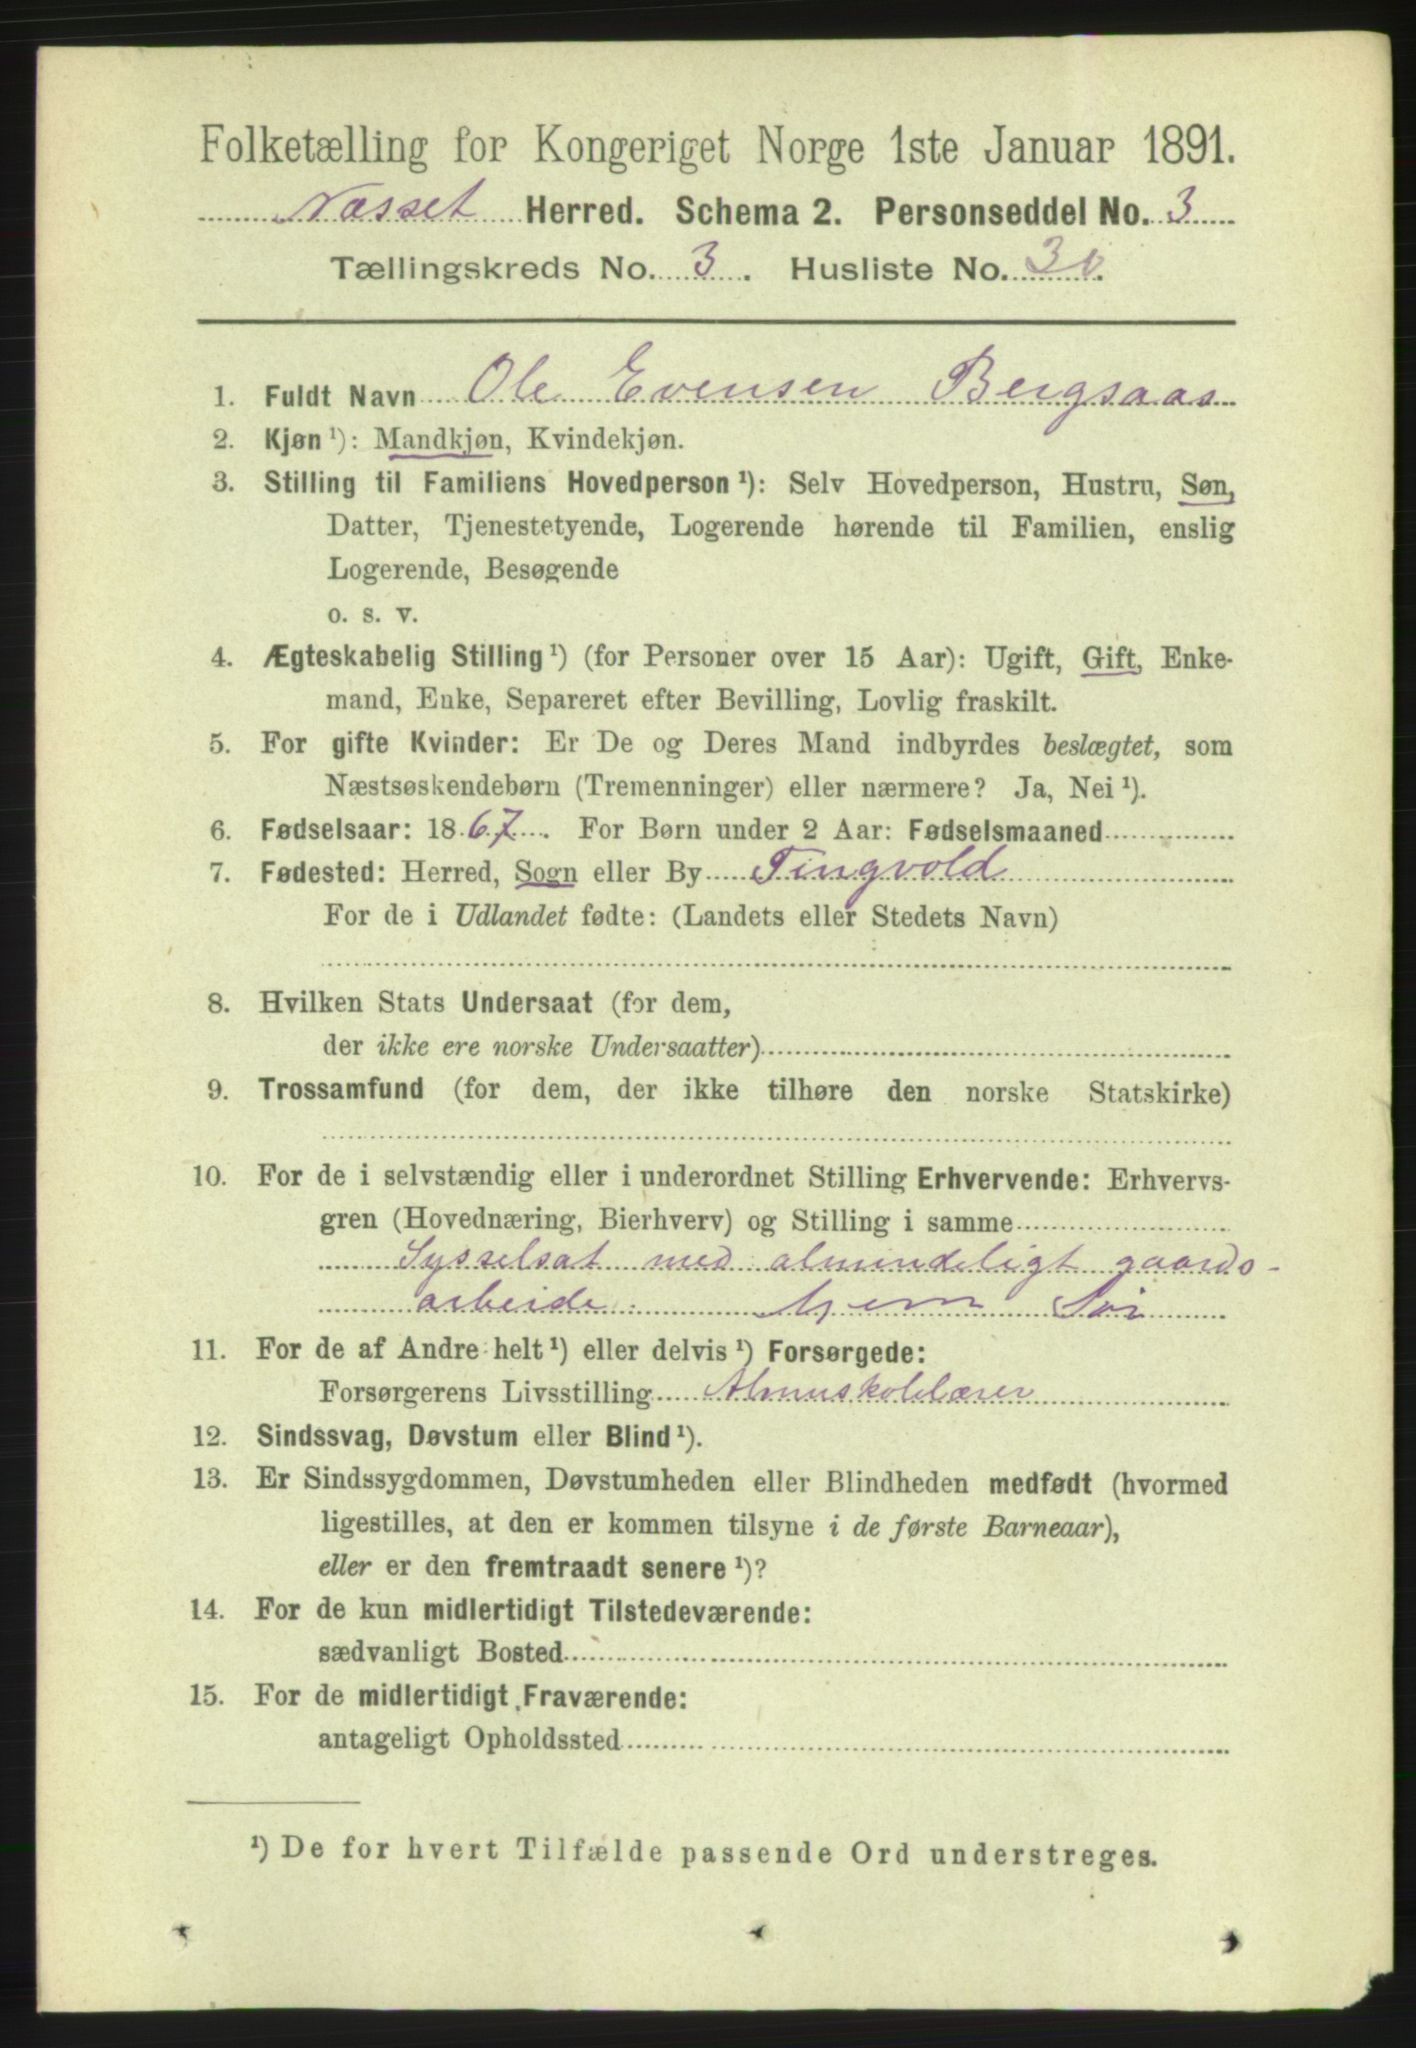 Folketælling for Kongeriget Norge 1ste Januar 1891.
Næsset Herred. Schema 2. Personseddel No. 3
Tællingskreds No. 3. Husliste No. 30.
1. Fuldt Navn Ole Evensen Bergsaas
2. Kjøn ¹): Mandkjøn, Kvindekjøn.
3. Stilling til Familiens Hovedperson ¹): Selv Hovedperson, Hustru, Søn,
Datter, Tjenestetyende, Logerende hørende til Familien, enslig
Logerende, Besøgende
o. s. v.
4. Ægteskabelig Stilling ¹) (for Personer over 15 Aar): Ugift, Gift, Enke-
mand, Enke, Separeret efter Bevilling, Lovlig fraskilt.
5. For gifte Kvinder: Er De og Deres Mand indbyrdes beslægtet, som
Næstsøskendebørn (Tremenninger) eller nærmere? Ja, Nei ¹).
6. Fødselsaar: 1867. For Børn under 2 Aar: Fødselsmaaned
7. Fødested: Herred, Sogn eller By Tingvold
For de i Udlandet fødte: (Landets eller Stedets Navn)
8. Hvilken Stats Undersaat (for dem,
der ikke ere norske Undersaatter)
9. Trossamfund (for dem, der ikke tilhøre den norske Statskirke)
10. For de i selvstændig eller i underordnet Stilling Erhvervende: Erhvervs-
gren (Hovednæring, Bierhverv) og Stilling i samme
Sysselsat med almindeligt gaards-
arbeide.
11. For de af Andre helt ¹) eller delvis ¹) Forsørgede:
Forsørgerens Livsstilling Almuskolelærer
12. Sindssvag, Døvstum eller Blind ¹).
13. Er Sindssygdommen, Døvstumheden eller Blindheden medfødt (hvormed
ligestilles, at den er kommen tilsyne i de første Barneaar),
eller er den fremtraadt senere ¹)?
14. For de kun midlertidigt Tilstedeværende:
sædvanligt Bosted
15. For de midlertidigt Fraværende:
antageligt Opholdssted
¹) De for hvert Tilfælde passende Ord understreges.